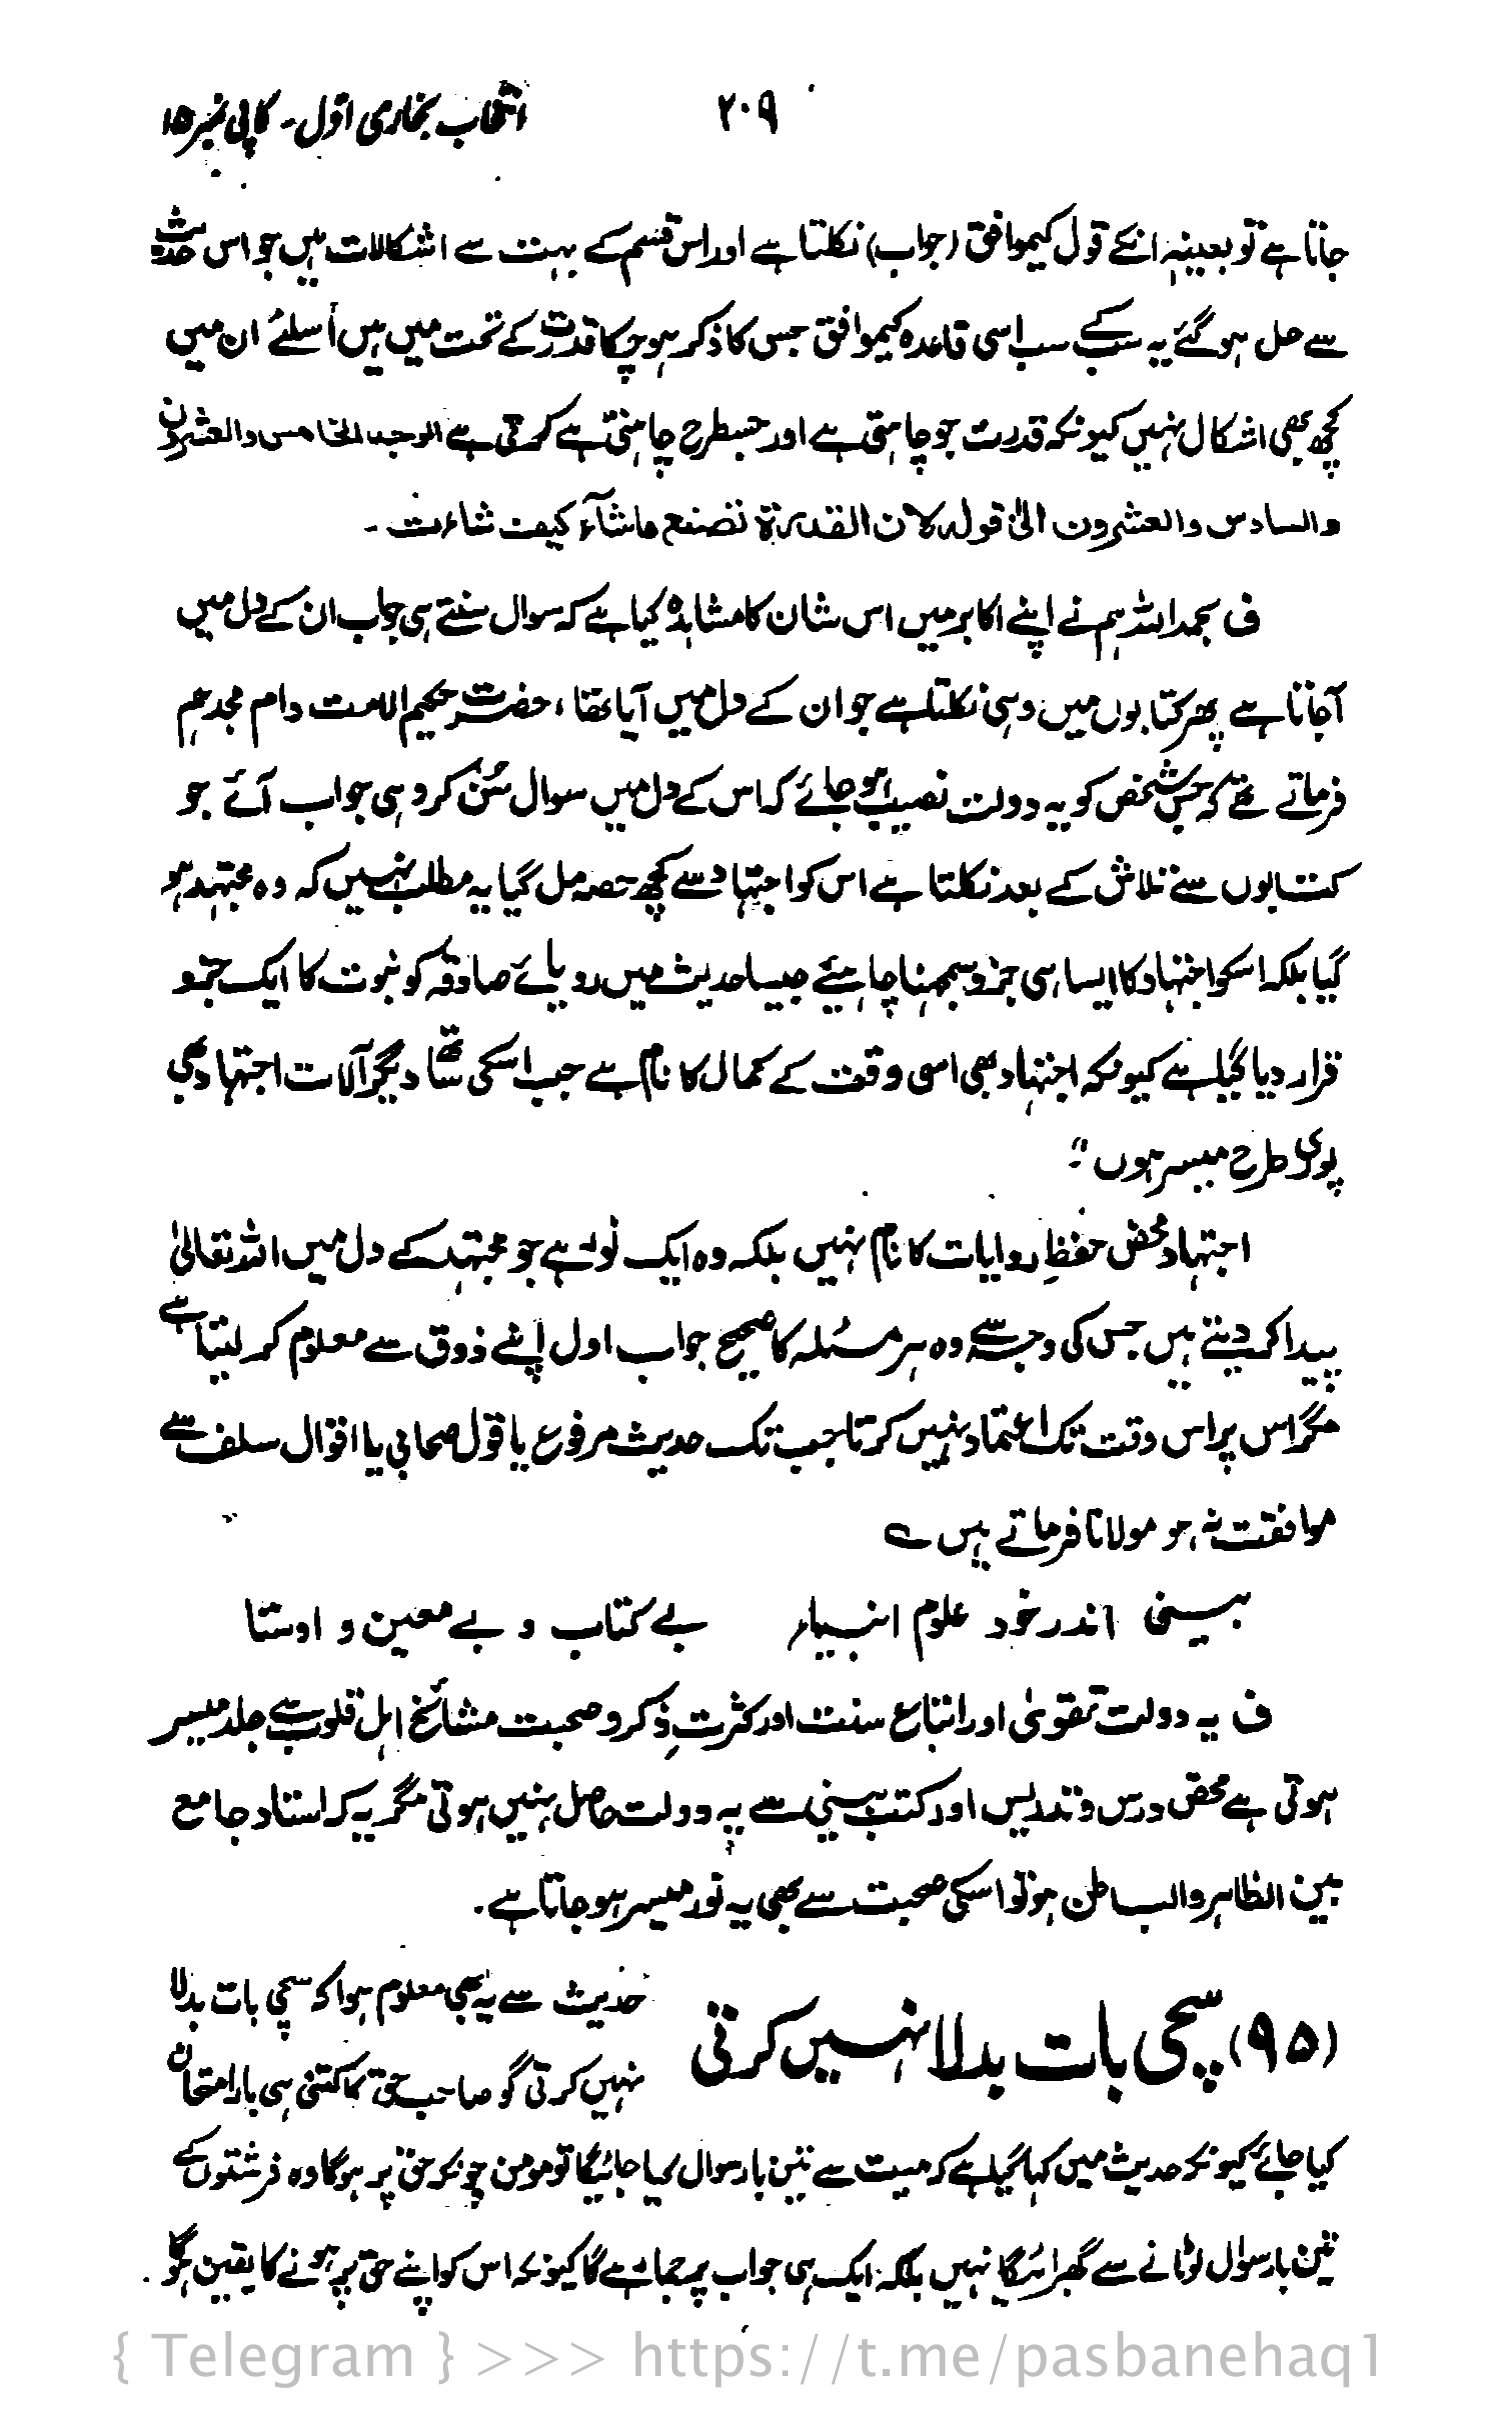 ۲۰۹ انتخاب بخاری اوّل - کاپی نمبر ۱۵
جاتا ہے تو بعینہٖ انکے قول کیموافق (جواب) نکلتا ہے اور اس قسم کے بہت سے اشکالات ہیں جو اس حدیث
سے حل ہو گئے یہ سب کے سب اسی قاعدہ کیموافق جس کا ذکر ہو چکا قدرت کے تحت میں ہیں اسلئے ان میں
کچھ بھی اشکال نہیں کیونکہ قدرت جو چاہتی ہے اور جسطرح چاہتی ہے کرتی ہے الوجہ الخامس والعشرون
والسادس والعشرون الیٰ قولہ لان القدرۃ تصنع ماشآء کیف شاءت ۔
ف بحمد اللہ ہم نے اپنے اکابر میں اس شان کا مشاہدہ کیا ہے کہ سوال سنتے ہی جواب ان کے دل میں
آجاتا ہے پھر کتابوں میں وہی نکلتا ہے جو ان کے دل میں آیا تھا ، حضرت حکیم الامت دام مجدہم
فرماتے تھے کہ جس شخص کو یہ دولت نصیب ہو جائے کہ اس کے دل میں سوال سُن کر وہی جواب آئے جو
کتابوں سے تلاش کے بعد نکلتا ہے اس کو اجتہاد سے کچھ حصہ مل گیا یہ مطلب نہیں کہ وہ مجتہد ہو
گیا بلکہ اسکو اجتہاد کا ایسا ہی جزو سمجھنا چاہیئے جیسا حدیث میں رویائے صادقہ کو نبوت کا ایک جزو
قرار دیا گیا ہے کیونکہ اجتہاد بھی اسی وقت کے کمال کا نام ہے جب اسکی ساتھ دیگر آلات اجتہاد بھی
پوری طرح میسر ہوں "۔
اجتہاد محض حفظِ روایات کا نام نہیں بلکہ وہ ایک نور ہے جو مجتہد کے دل میں اللہ تعالیٰ
پیدا کر دیتے ہیں جس کی وجہ سے وہ ہر مسئلہ کا صحیح جواب اول اپنے ذوق سے معلوم کر لیتا ہے
مگر اس پر اس وقت تک اعتماد نہیں کرتا جب تک حدیث مرفوع یا قول صحابی یا اقوال سلف سے
موافقت نہ ہو مولانا فرماتے ہیں ؎
بینی اندر خود علوم انبیاء بے کتاب و بے معین و اوستا
ف یہ دولت تقویٰ اور اتباع سنت اور کثرتِ ذکر و صحبت مشائخ اہل قلوب سے جلد میسر
ہوتی ہے محض درس و تدریس اور کتب بینی سے یہ دولت حاصل نہیں ہوتی مگر یہ کہ استاد جامع
بین الظاہر والباطن ہو تو اسکی صحبت سے بھی یہ نور میسر ہو جاتا ہے ۔
(۹۵) سچی بات بدلا نہیں کرتی
حدیث سے یہ بھی معلوم ہوا کہ سچی بات بدلا
نہیں کرتی گو صاحب حق کا کتنی ہی بار امتحان
کیا جائے کیونکہ حدیث میں کہا گیا ہے کہ میت سے تین بار سوال کیا جائیگا تو مومن چونکہ حق پر ہوگا وہ فرشتوں کے
تین بار سوال لوٹانے سے گھبرائیگا نہیں بلکہ ایک ہی جواب پر جما رہے گا کیونکہ اس کو اپنے حق پر ہونے کا یقین ہوگا ۔
{ Telegram } >>> https://t.me/pasbanehaq1